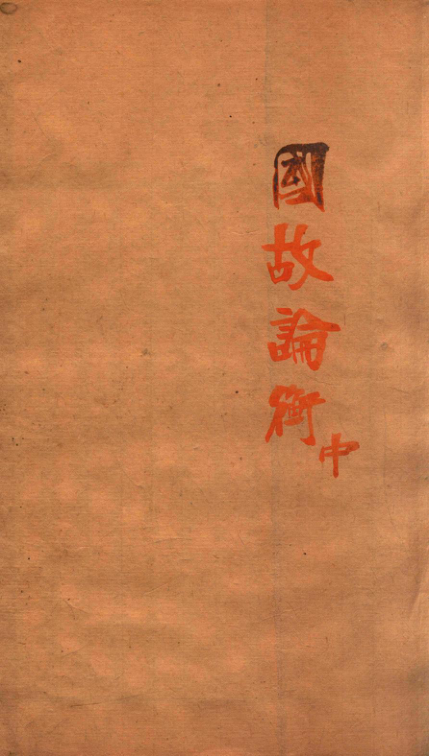 國故論衡中